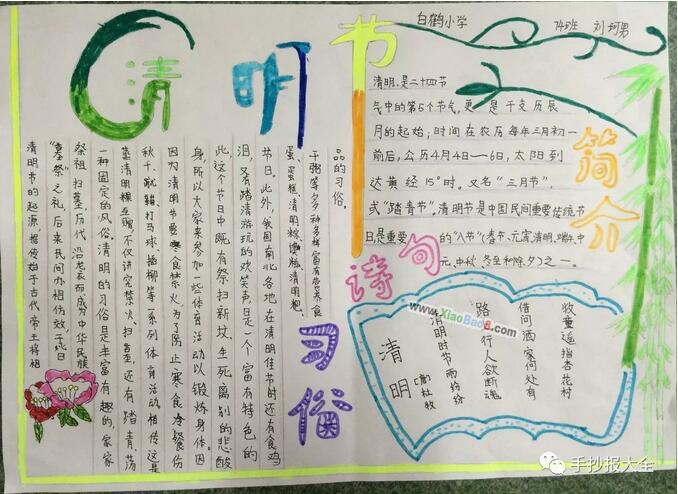 清明节
白鹤小学 74班 刘珂男
简介
清明,是二十四节
气中的第5个节气,更是干支历辰
月的起始;时间在农历每年三月初一
前后,公历4月4日—6日,太阳到
达黄经15°时。又名“三月节”,
或“踏青节”。清明节是中国民间重要传统节
日,是重要的“八节”(春节、元宵、清明、端午、中
元、中秋、冬至和除夕)之一。
习俗
清明节的起源,据传始于古代帝王将相
“墓祭”之礼,后来民间亦相仿效,于此日
祭祖扫墓,历代沿袭而成为中华民族
一种固定的风俗。清明的习俗是丰富有趣的,家家
蒸清明粿互赠不仅讲究禁火、扫墓,还有踏青、荡
秋千、蹴鞠、打马球、插柳等一系列体育活动。相传这是
因为清明节要寒食禁火,为了防止寒食冷餐伤
身,所以大家来参加一些体育活动以锻炼身体。因
此,这个节日中既有祭扫新坟,生死离别的悲酸
泪,又有踏清游玩的欢笑声,是一个富有特色的
节日。此外,我国南北各地在清明佳节时还有食鸡
蛋、蛋糕、清明粽、馍糍、清明粑、
干粥等多种多样富有营养食
品的习俗。
诗句
清明
(唐)杜牧
清明时节雨纷纷
路上行人欲断魂
借问酒家何处有
牧童遥指杏花村
www.XiaoBao8.com
手抄报大全